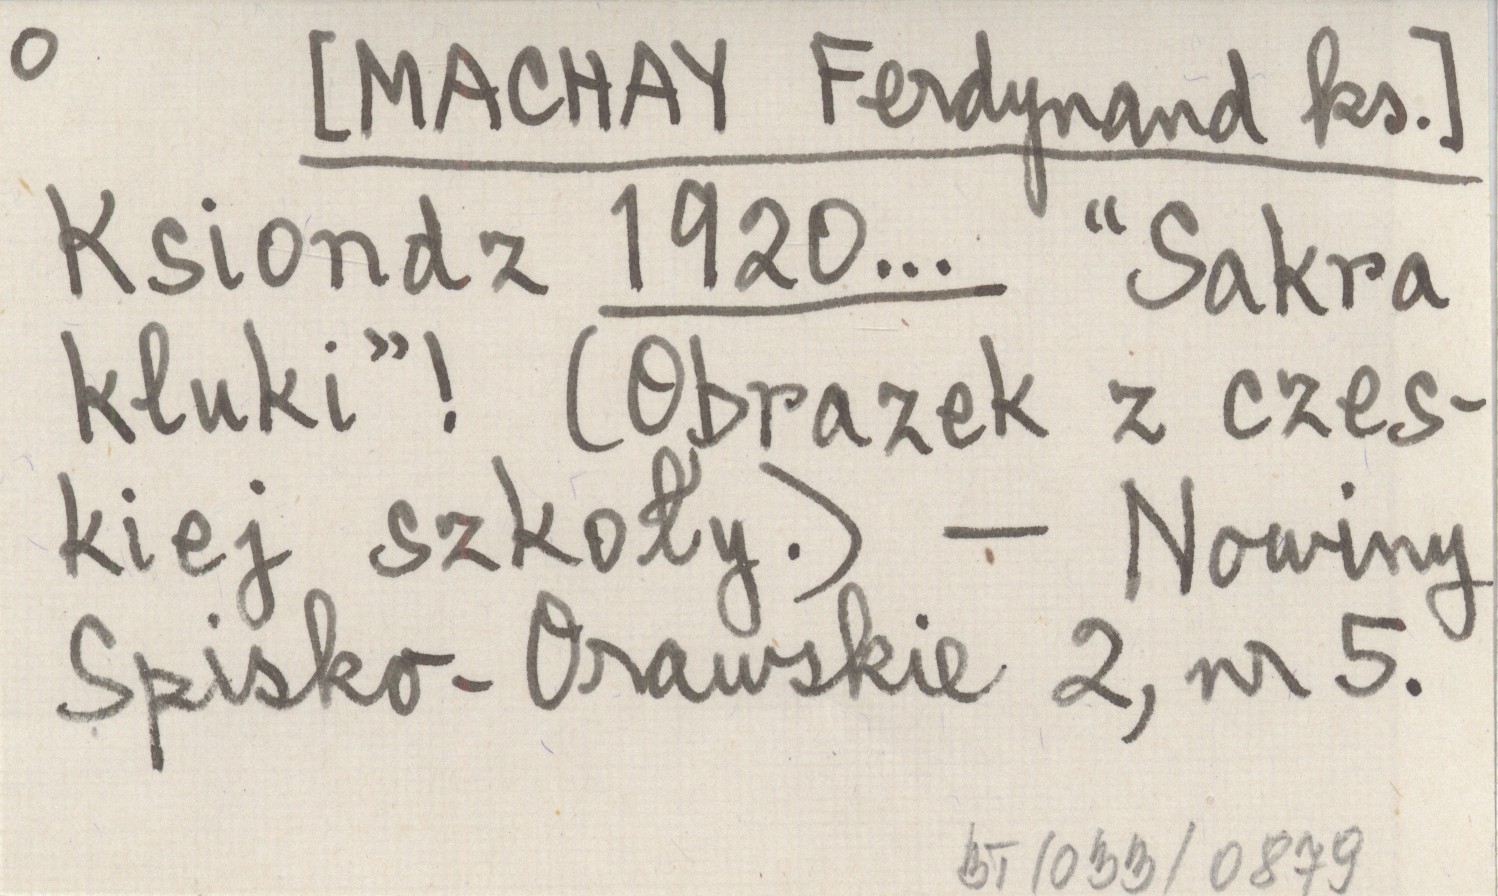 O [MACHAY Ferdynand ks.]
Ksiondz 1920... “Sakra
kluki”! (Obrazek z czes-
kiej szkoły.) — Nowiny
Spisko-Orawskie 2, nr 5.
BT/033/0879